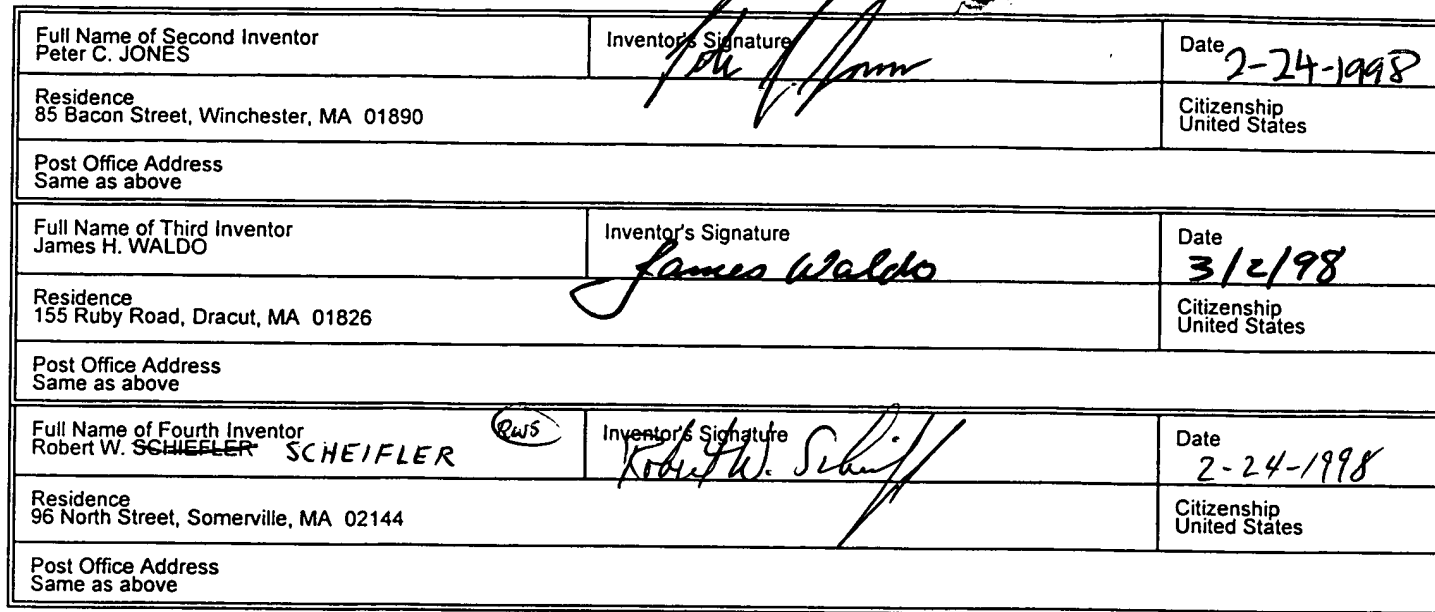 Full Name of Second Inventor
Peter C. JONES
Inventor's Signature
Date
2-24-1998
Residence
85 Bacon Street, Winchester, MA 01890
Citizenship
United States
Post Office Address
Same as above
Full Name of Third Inventor
James H. WALDO
Inventor's Signature
James Waldo
Date
3/2/98
Residence
155 Ruby Road, Dracut, MA 01826
Citizenship
United States
Post Office Address
Same as above
Full Name of Fourth Inventor
Robert W. SCHIEFLER SCHEIFLER
RWS
Inventor's Signature
Robert W. Scheifler
Date
2-24-1998
Residence
96 North Street, Somerville, MA 02144
Citizenship
United States
Post Office Address
Same as above